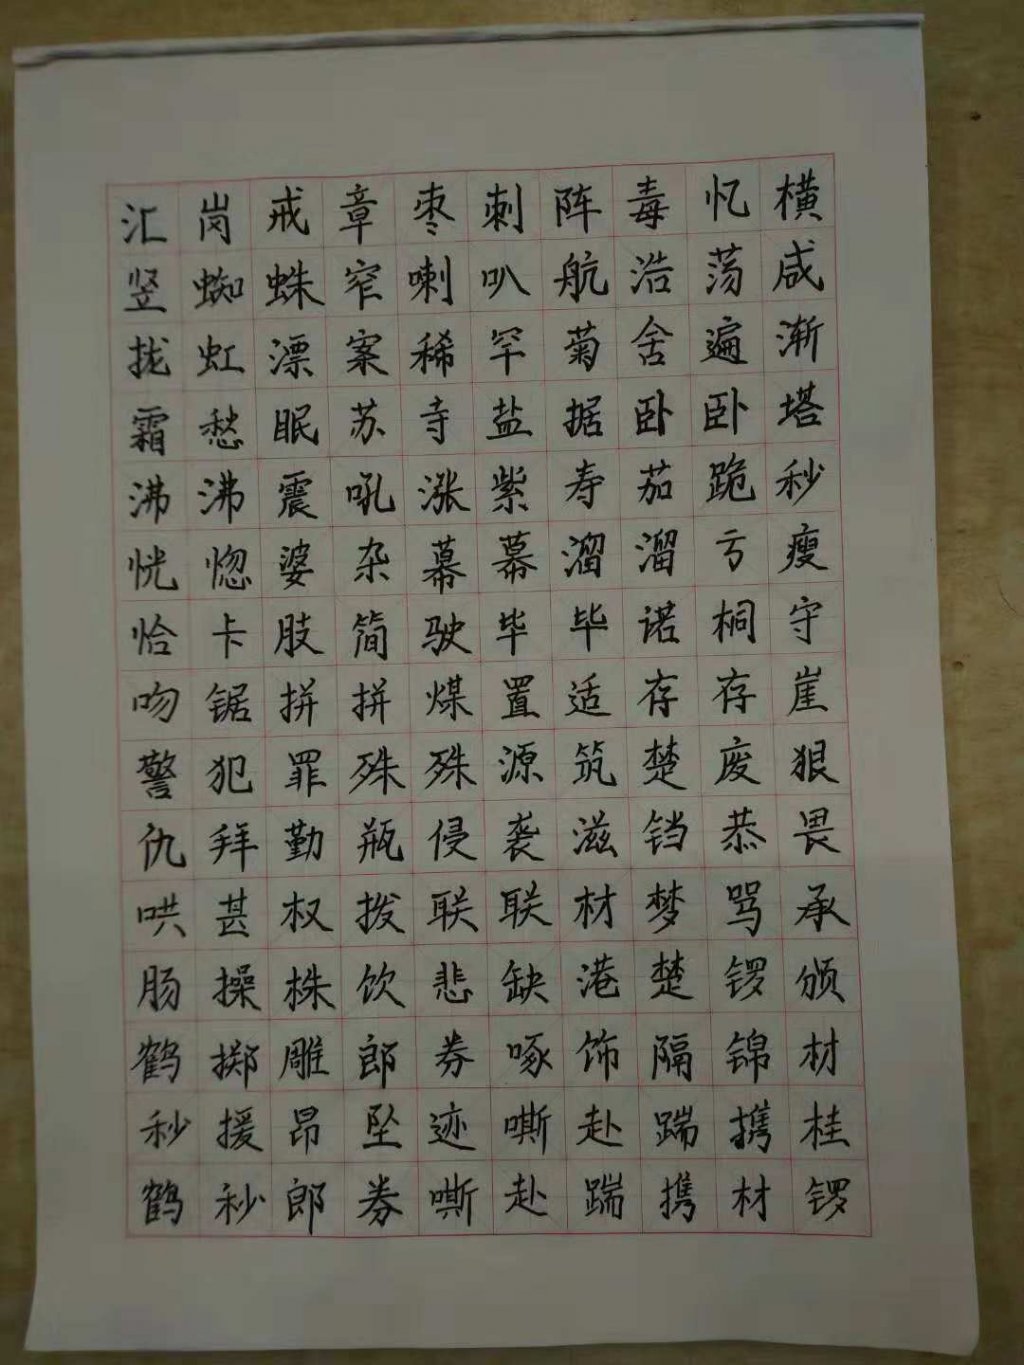 汇岗戒章枣刺阵毒忆横
竖蜘蛛窄喇叭航浩荡咸
拢虹漂案稀罕菊舍遍渐
霜愁眠苏寺盐据卧卧塔
沸沸震吼涨紫寿茄跪秒
恍惚婆杂幕幕溜溜亏瘦
恰卡肢简驶毕毕诺桐守
吻锯拼拼煤置适存存崖
警犯罪殊殊源筑楚废狠
仇拜勤瓶侵袭滋铛恭畏
哄甚权拨联联材梦骂承
肠操株饮悲缺港楚锣颁
鹤掷雕郎券啄饰隔锦材
秒援昂坠迹嘶赴踹携桂
鹤秒郎券嘶赴踹携材锣